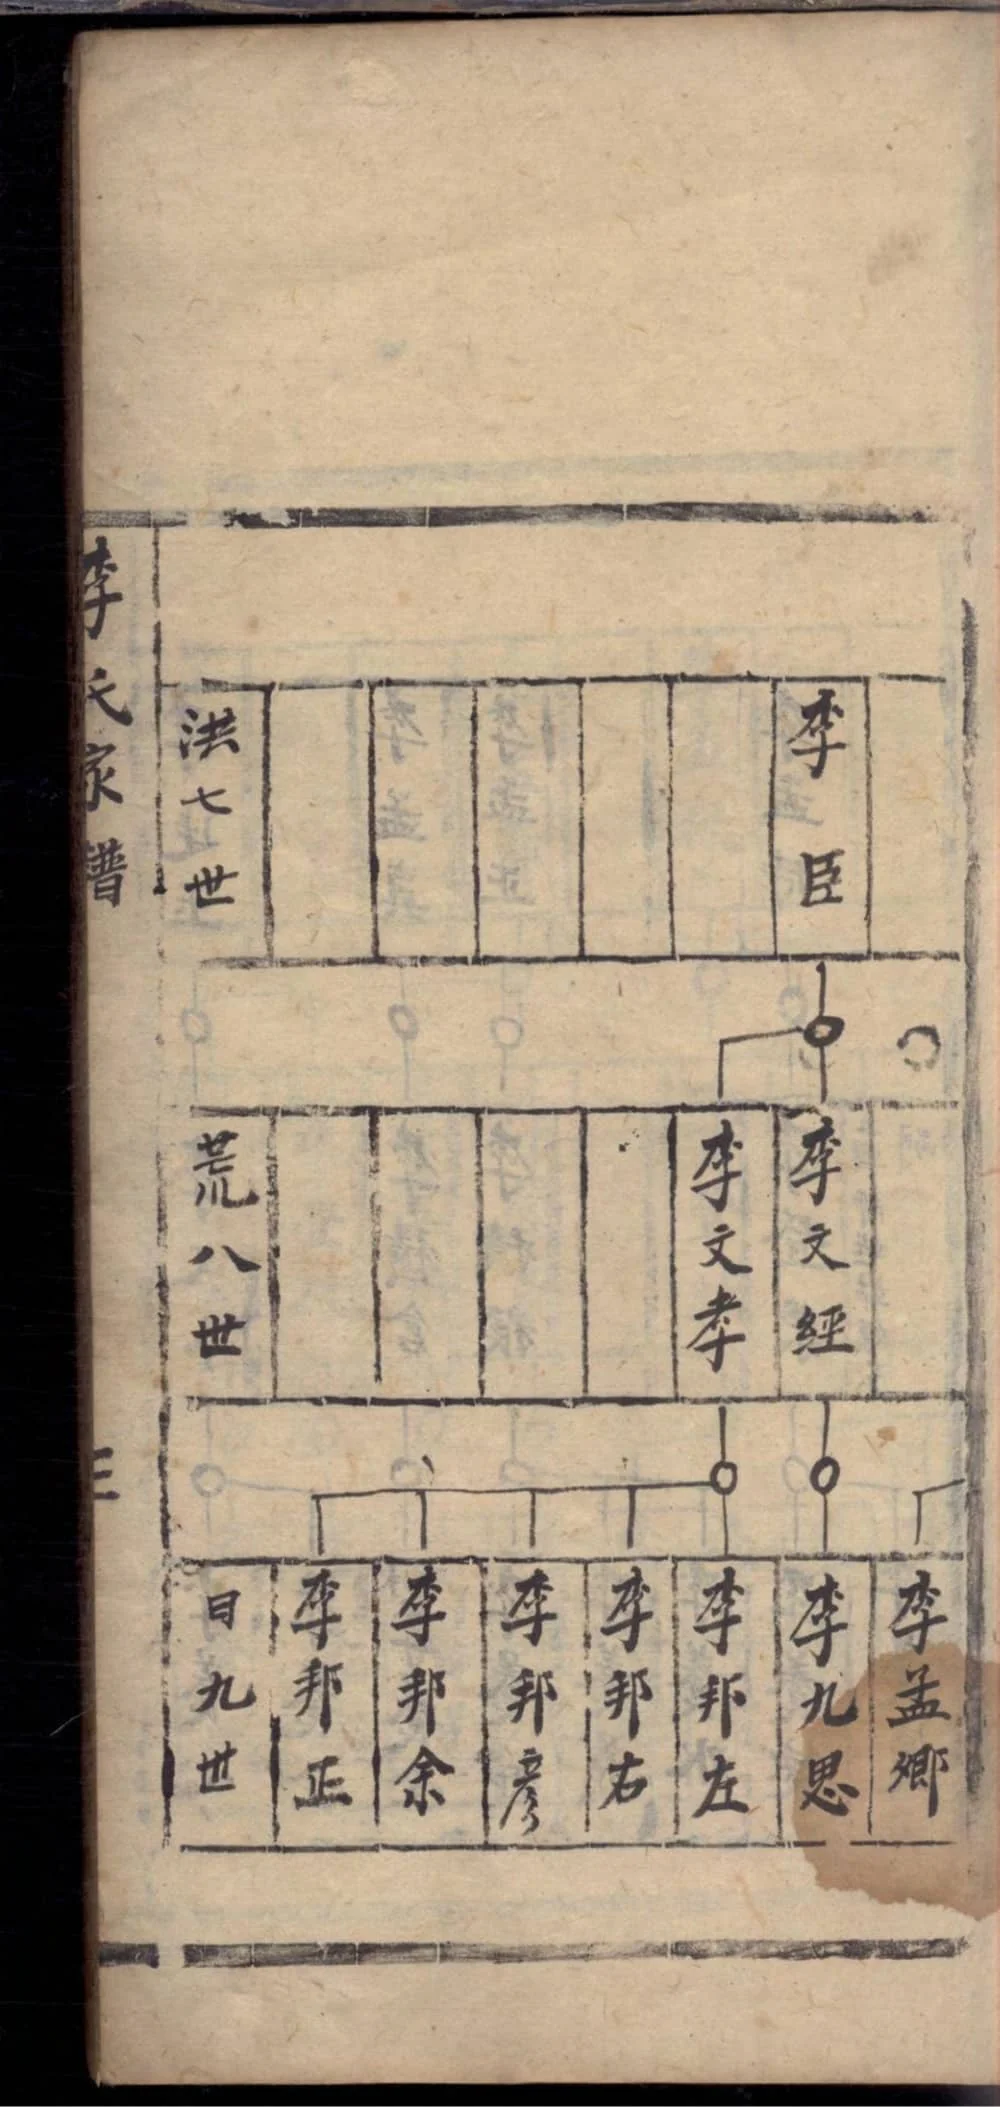 李臣
洪七世
李文經
李文孝
荒八世
李孟鄉
李九思
李邦左
李邦右
李邦彥
李邦余
李邦正
日九世
李氏家譜
三